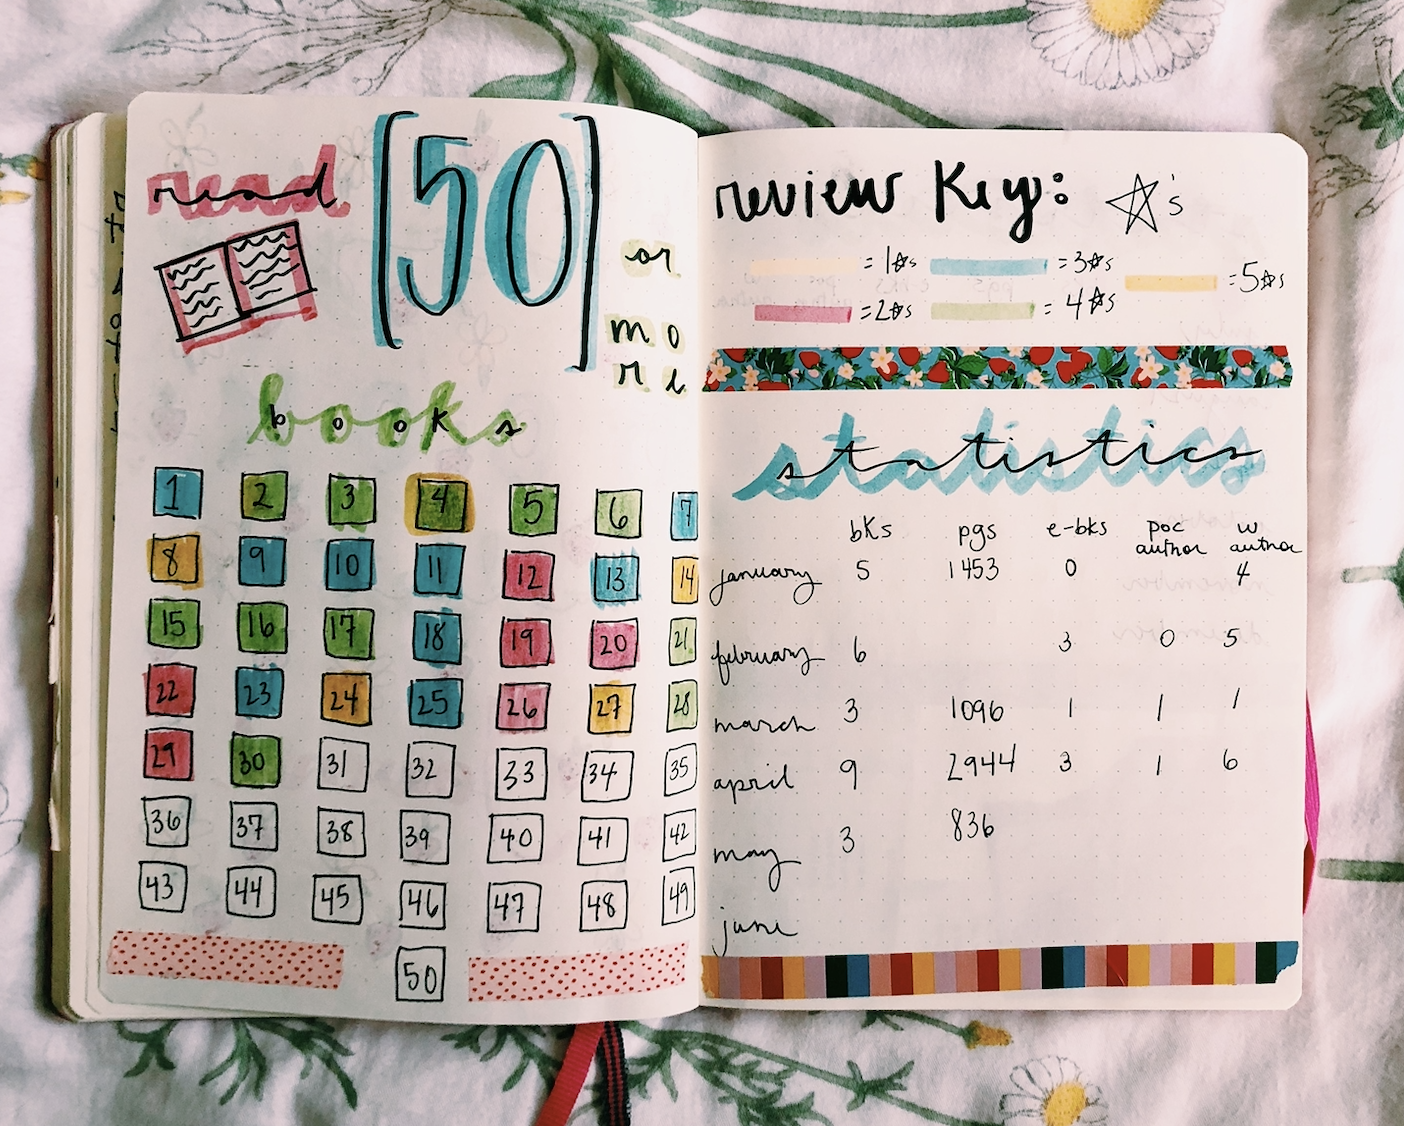 read [50] or
mo
re
books
1 2 3 4 5 6 7
8 9 10 11 12 13 14
15 16 17 18 19 20 21
22 23 24 25 26 27 28
29 30 31 32 33 34 35
36 37 38 39 40 41 42
43 44 45 46 47 48 49
50
review Key: ☆'s
= 1☆s = 3☆s = 5☆s
= 2☆s = 4☆s
statistics
bks pgs e-bks poc author w author
january 5 1453 0 4
february 6 3 0 5
march 3 1096 1 1 1
april 9 2944 3 1 6
may 3 836
june